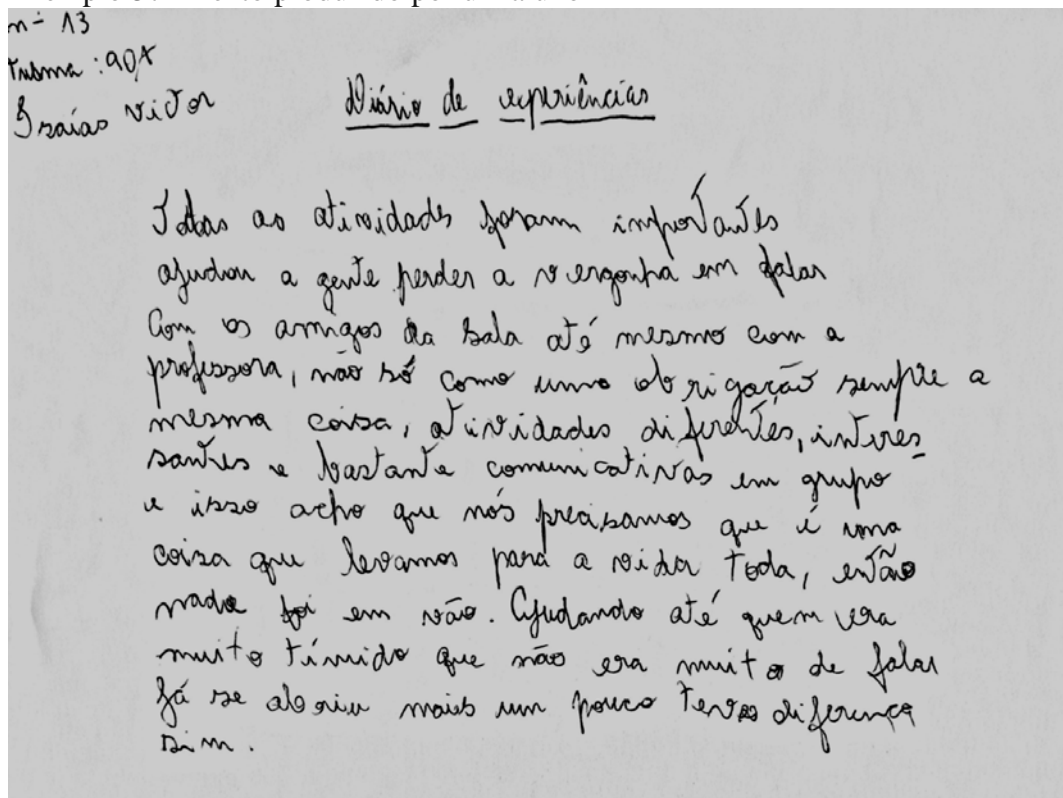 nº 13
Turma: 901
Isaías Victor
Diário de experiências
Todas as atividades foram importantes
ajudou a gente perder a vergonha em falar
com os amigos da sala até mesmo com a
professora, não só como uma obrigação sempre a
mesma coisa, atividades diferentes, interes
santes e bastante comunicativas em grupo
e isso acho que nós precisamos que é uma
coisa que levamos para a vida toda, então
nada foi em vão. Ajudando até quem era
muito tímido que não era muito de falar
já se abriu mais um pouco diferença
sim.